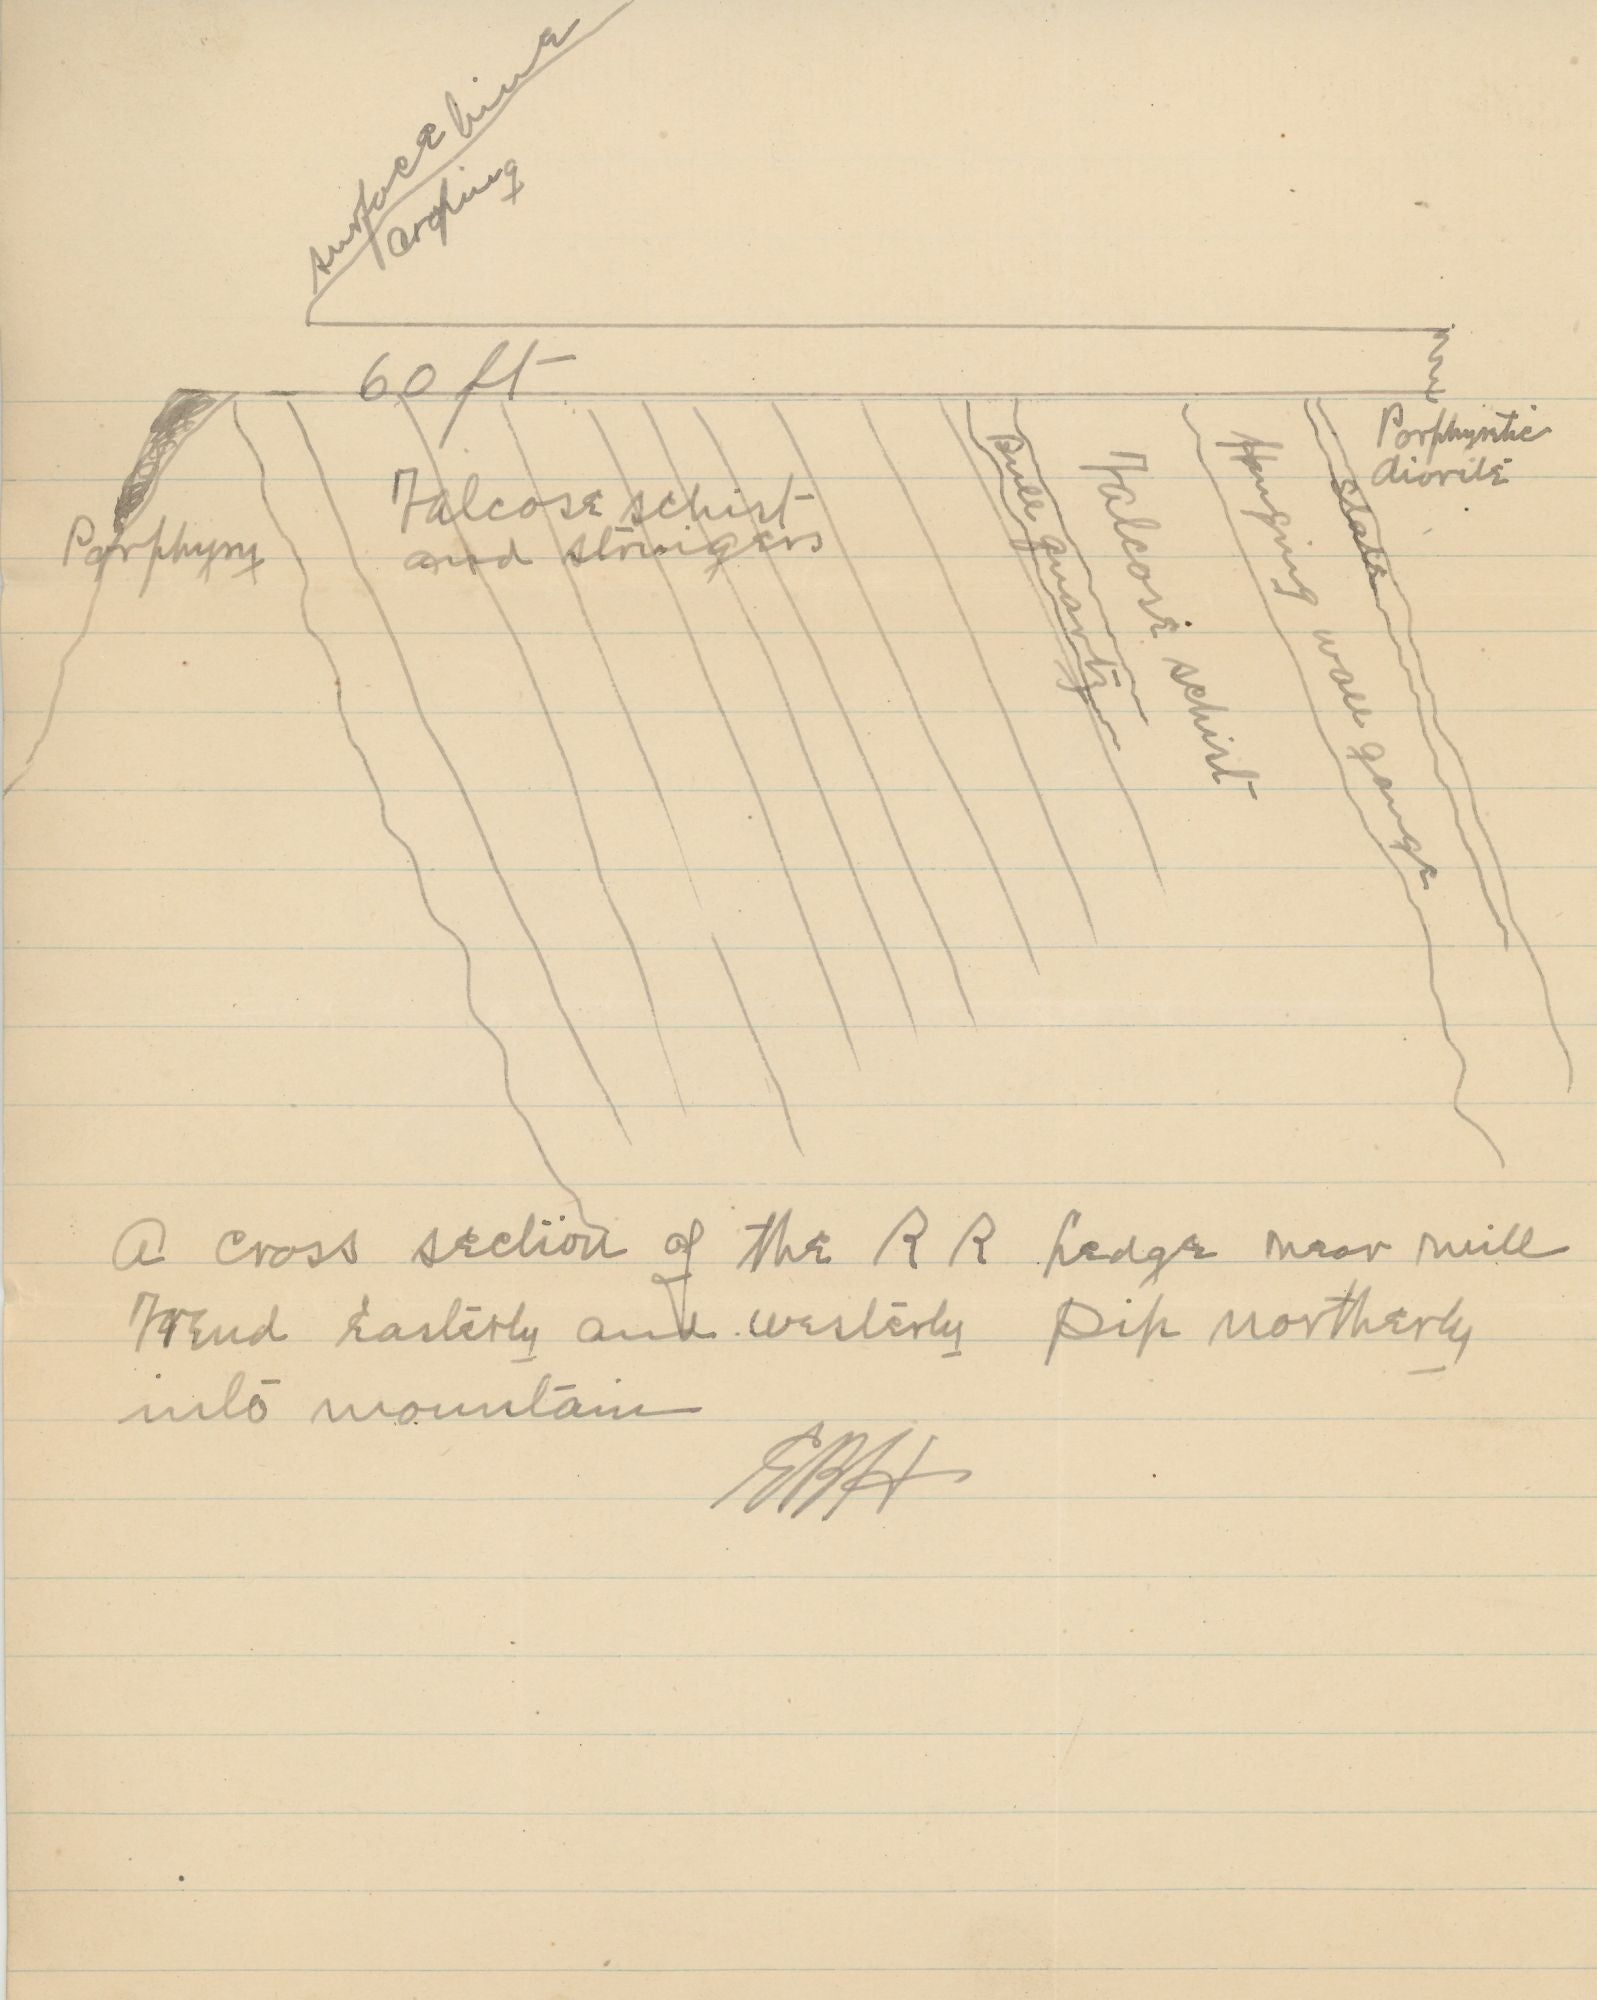 surface line
60 ft
Porphyry
Talcose schist
and stringers
Bull quartz
Talcose schist
Hanging wall gouge
Slate
Porphyritic
diorite
A cross section of the R R Ledge near mill
Trend Easterly and westerly Dip northerly
into mountain
EBH